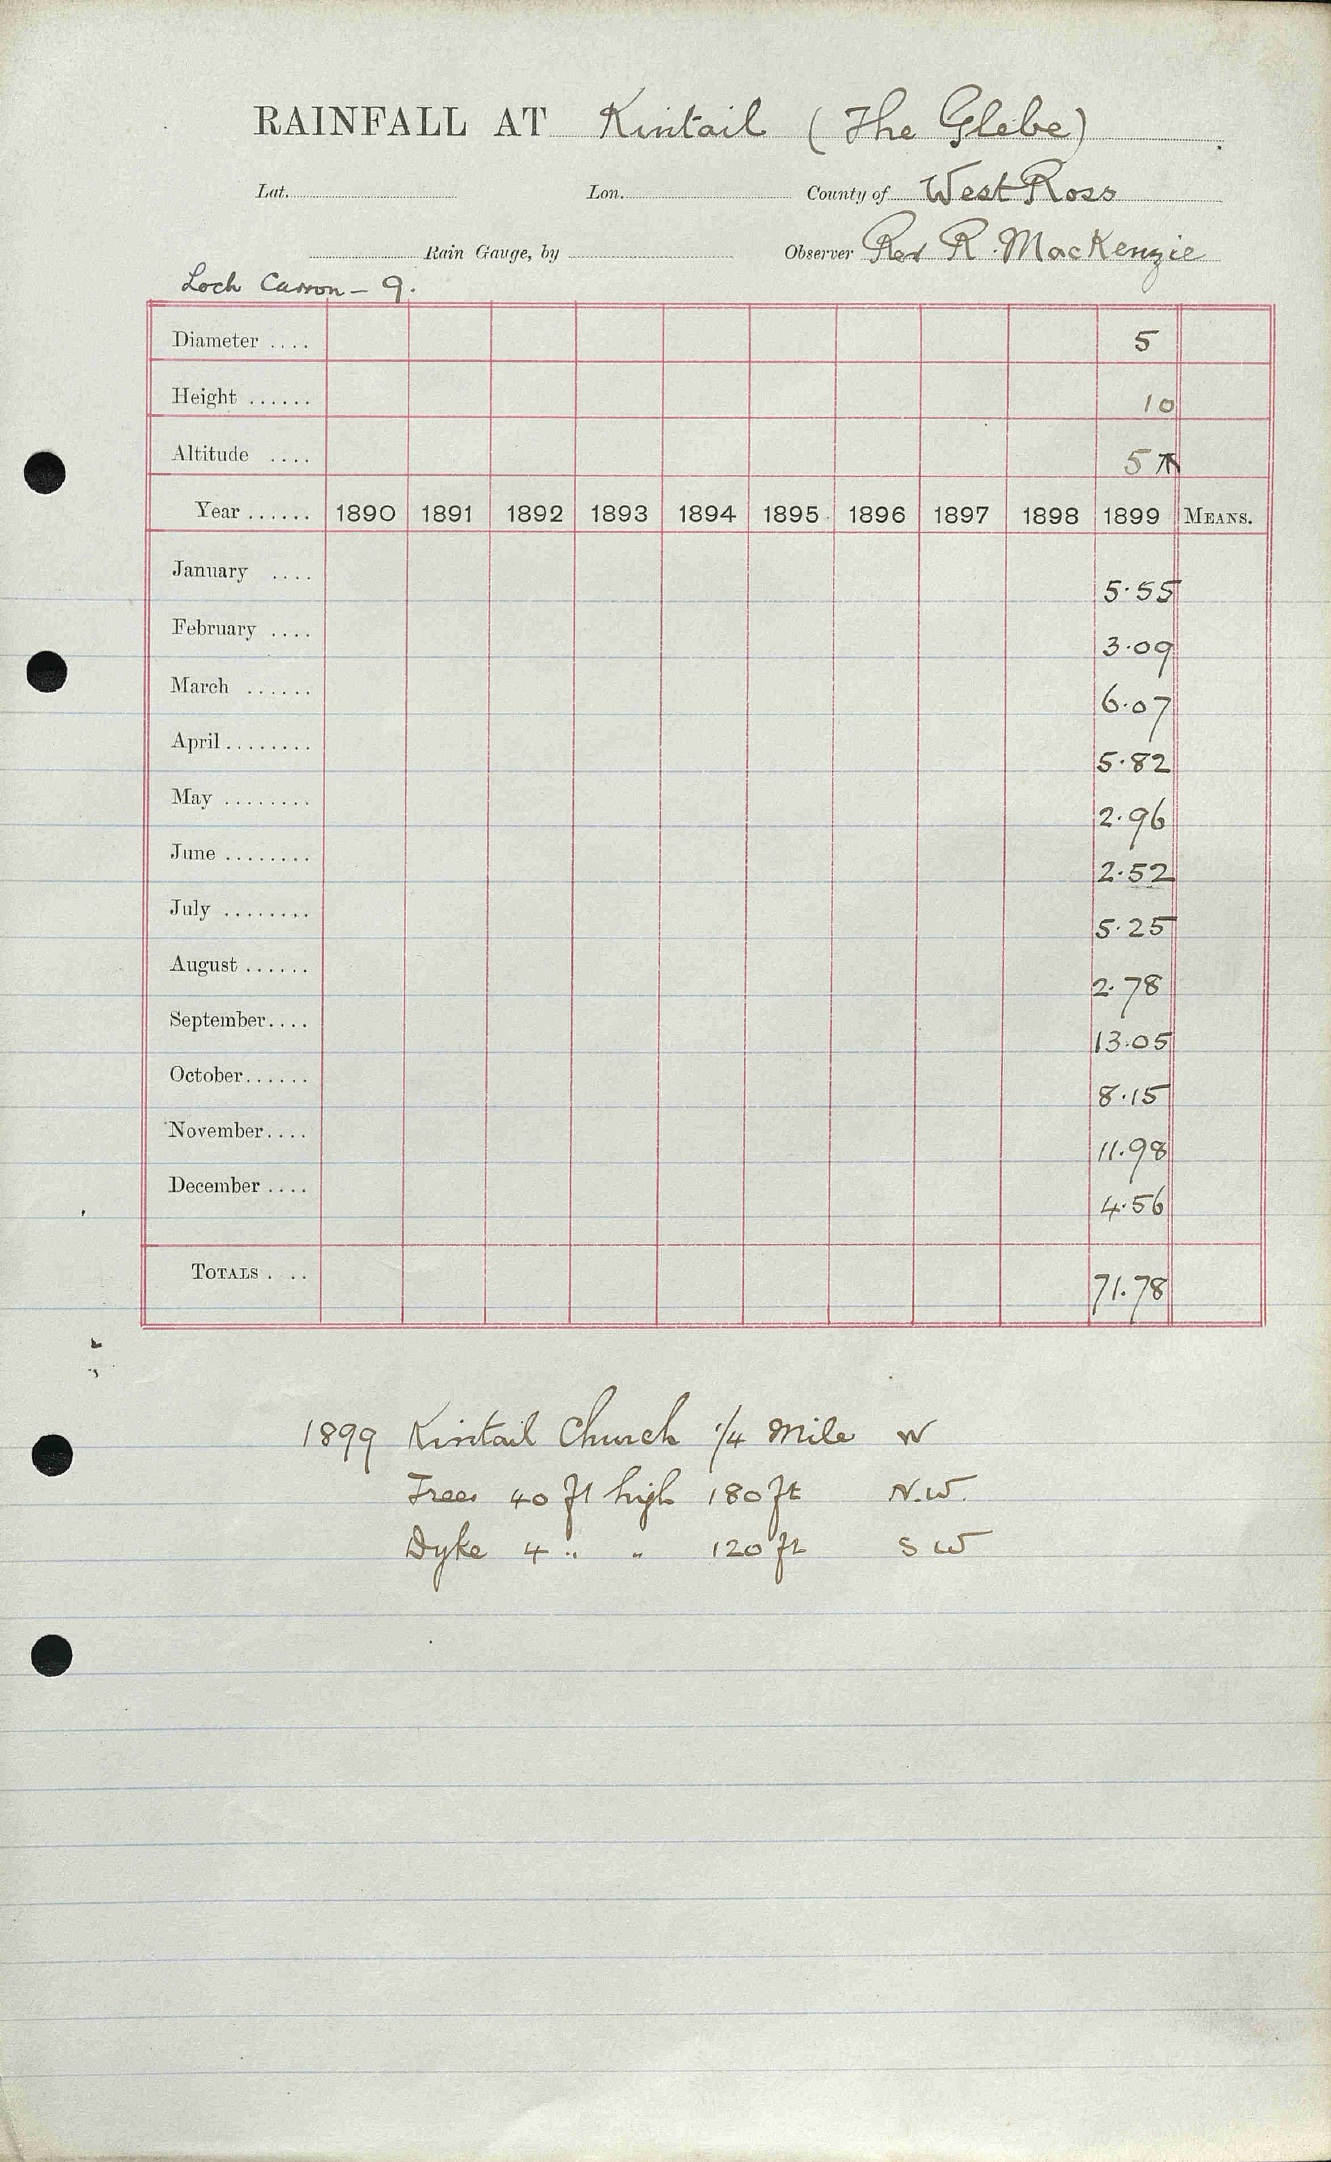 RAINFALL AT Kintail (The Glebe)
Lat. Lon. County of West Ross
Rain Gauge, by Observer Rev R. MacKenzie
Loch Carron - 9.
Diameter .... 5
Height ...... 10
Altitude .... 5
Year ...... 1890 1891 1892 1893 1894 1895 1896 1897 1898 1899 MEANS.
January .... 5.55
February .... 3.09
March ...... 6.07
April ........ 5.82
May ........ 2.96
June ........ 2.52
July ........ 5.25
August ...... 2.78
September.... 13.05
October...... 8.15
November.... 11.98
December .... 4.56
TOTALS . .. 71.78
1899 Kintail Church 1/4 Mile W
Trees 40 ft high 180 ft N.W.
Dyke 4 " " 120 ft S W